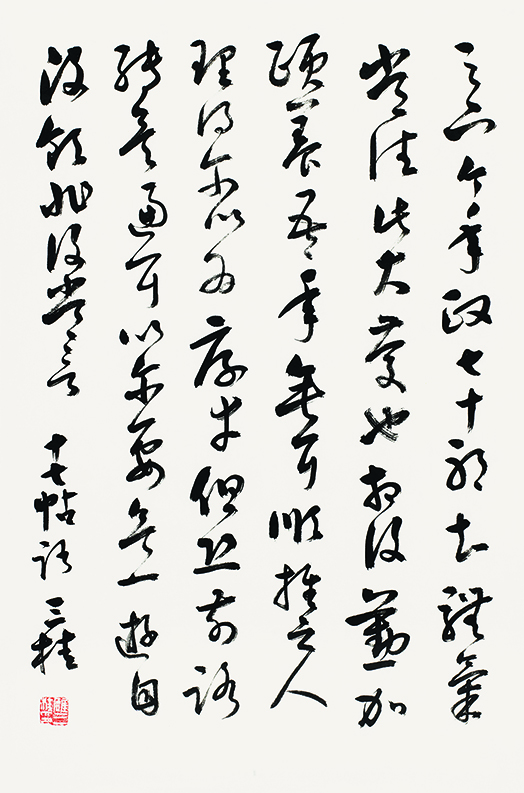 足下今年政七十耶知體氣
常佳此大慶也想復懃加
頤養吾年垂耳順推之人
理得尔以為厚幸但恐前路
轉欲逼耳以尔要欲一遊目
汶領非復常言 十七帖語 三桂